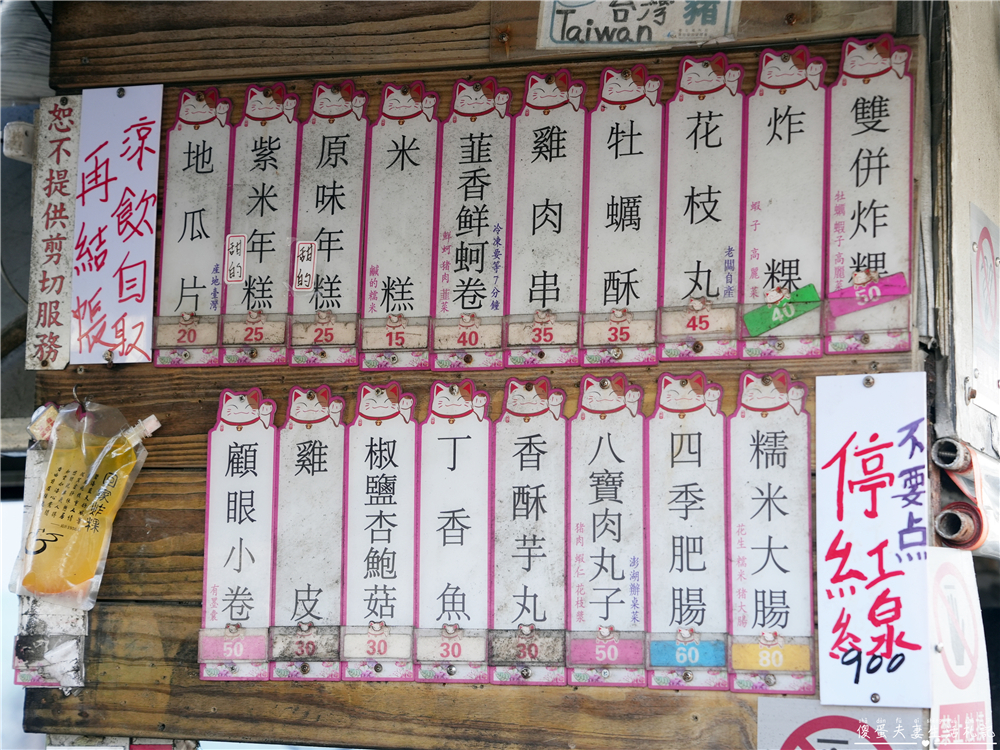 台灣豬
Taiwan
雙併炸粿
牡蠣 蝦子 高麗菜
50
炸粿
蝦子 高麗菜
40
花枝丸
老闆自產
45
牡蠣酥
35
雞肉串
35
韮香鮮蚵卷
冷凍要等7分鐘
鮮蚵 猪肉 韮菜
40
米糕
鹹的糯米
15
原味年糕
甜的
25
紫米年糕
甜的
25
地瓜片
産地臺灣
20
涼飲自取
再結帳
恕不提供剪切服務
不要点
停紅線
900
糯米大腸
花生 糯米 猪大腸
80
四季肥腸
60
八寶肉丸子
澎湖辦桌菜
猪肉 蝦仁 花枝漿
50
香酥芋丸
30
丁香魚
30
椒鹽杏鮑菇
30
雞皮
30
顧眼小卷
有墨囊
50
傻蛋夫妻